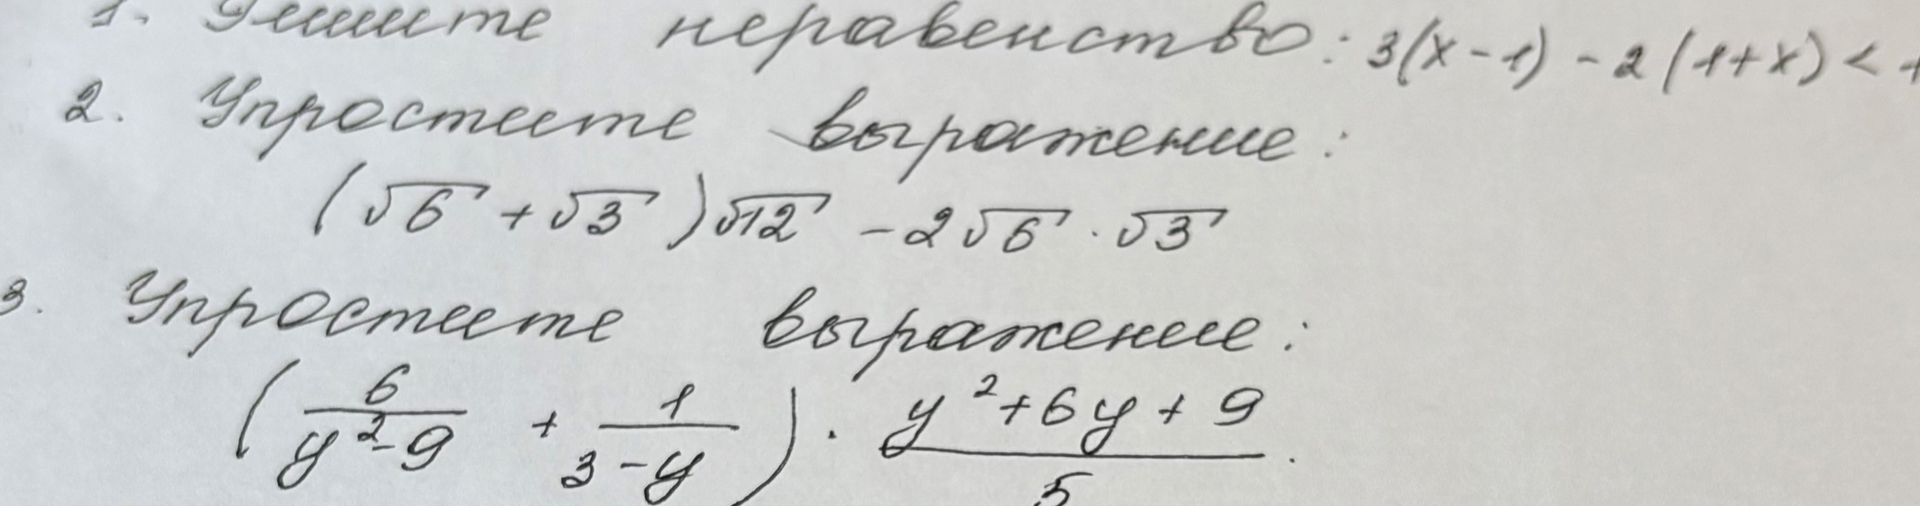 1. Решите неравенство: 3(x-1) - 2(1+x) <
2. Упростите выражение:
(√6 + √3)√12 - 2√6 · √3
3. Упростите выражение:
(6/(y²-9) + 1/(3-y)) · (y²+6y+9)/5.